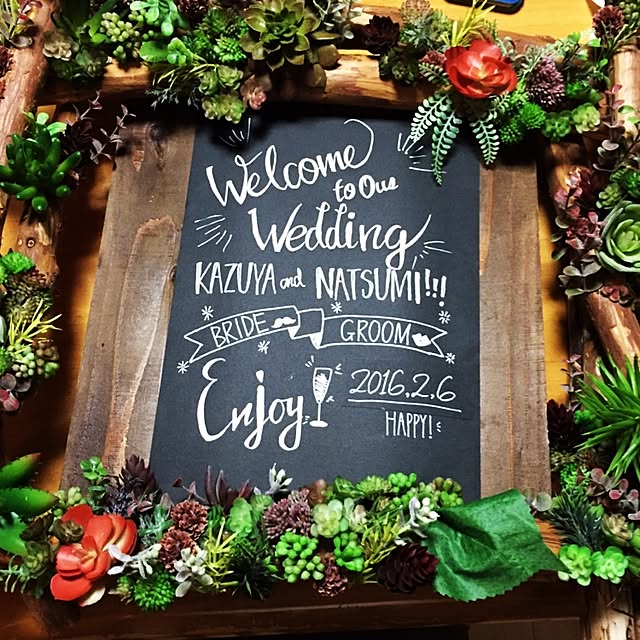 Welcome
to Our
Wedding
KAZUYA and NATSUMI!!!
BRIDE GROOM
Enjoy!
2016.2.6
HAPPY!